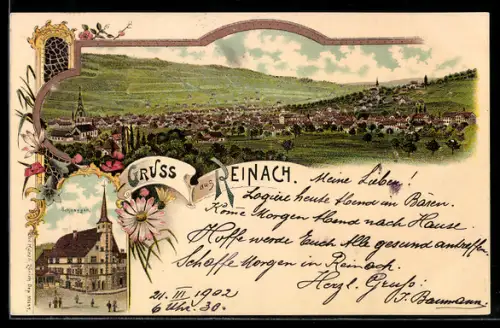 GRUSS
aus
REINACH.
Meine Lieben!
Logiere heute Abend in Bären.
Kome Morgen Abend nach Hause.
Hoffe werde Euch Alle gesund antreffen.
Schaffe Morgen in Reinach.
Herzl. Gruß:
J. Baumann.
21. III 1902
6 Uhr. 30.